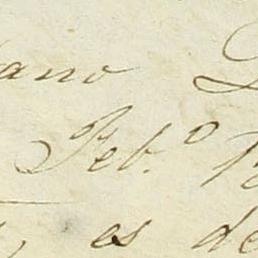 ano
Feb.º
es de